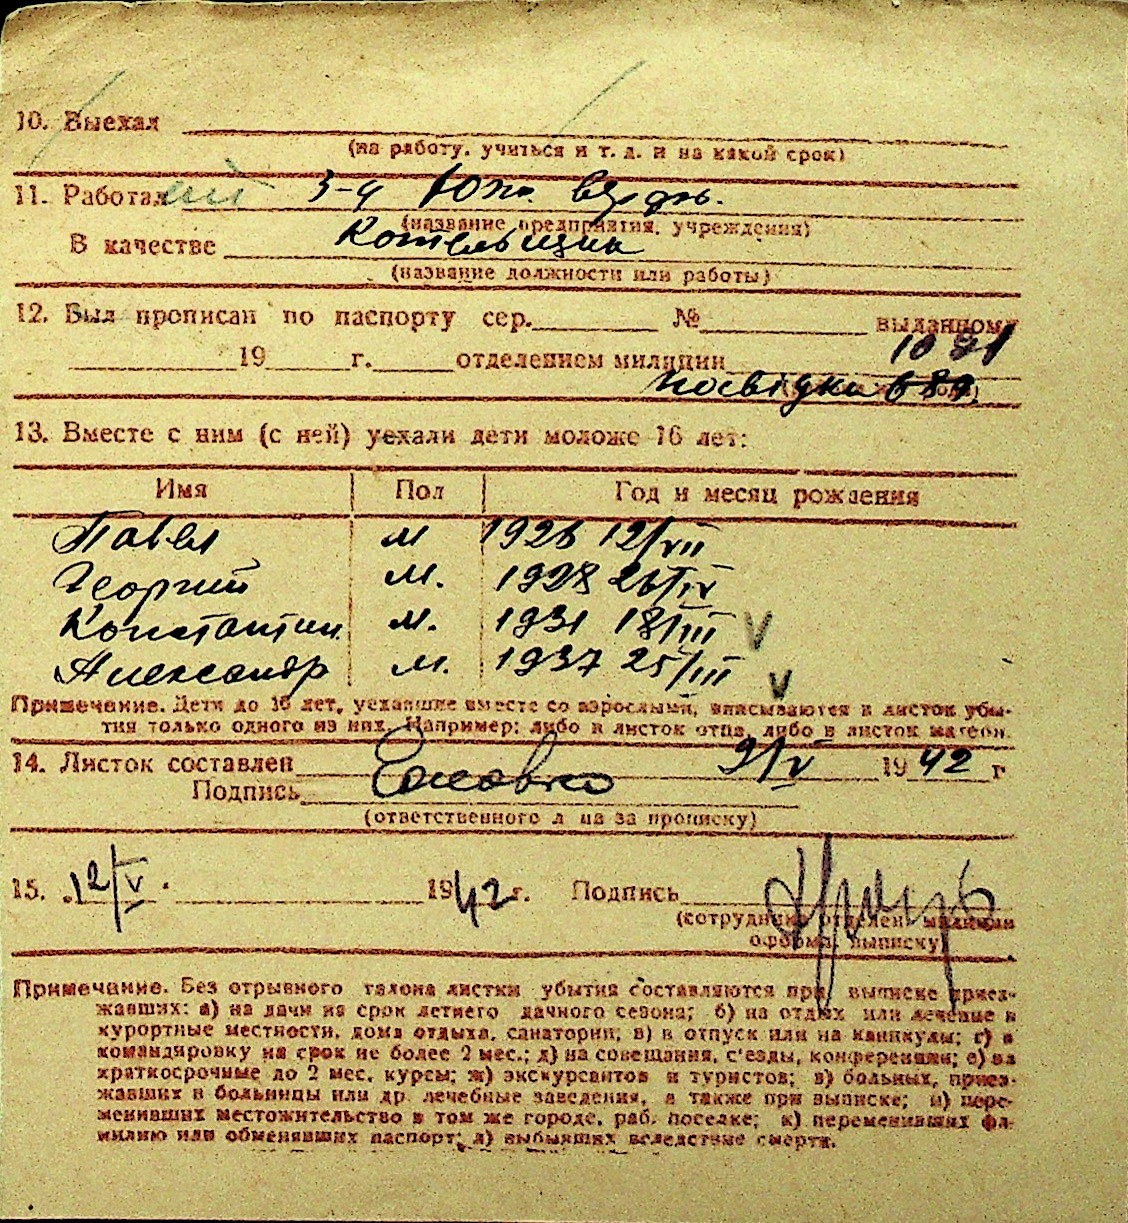 10. Выехал
(на работу, учиться и т. д. и на какой срок)
11. Работал 3-д Южн.
(название предприятия, учреждения)
В качестве Котельщик
(название должности или работы)
12. Был прописан по паспорту сер. № выданному
19 г. отделением милиции
посвідка
13. Вместе с ним (с ней) уехали дети моложе 16 лет:
Имя Пол Год и месяц рождения
Павел м 1926 12/VII
Георгий м. 1928 26/IV
Константин м. 1931 18/III V
Александр м. 1937 25/III V
Примечание. Дети до 16 лет, уехавшие вместе со взрослыми, вписываются в листок убы-
тия только одного из них. Например: либо в листок отца, либо в листок матери.
14. Листок составлен 9/V 1942 г.
Подпись
(ответственного лица за прописку)
15. 12/V 1942 г. Подпись
(сотрудника отделен. милиции
оформ. выписку)
Примечание. Без отрывного талона листки убытия составляются при выписке приез-
жавших: а) на дачи на срок летнего дачного сезона; б) на отдых или лечение в
курортные местности, дома отдыха, санатории; в) в отпуск или на каникулы; г) в
командировку на срок не более 2 мес.; д) на совещания, с'езды, конференции; е) на
краткосрочные до 2 мес. курсы; ж) экскурсантов и туристов; з) больных, приез-
жавших в больницы или др. лечебные заведения, а также при выписке; и) пере-
менивших местожительство в том же городе, раб. поселке; к) переменивших фа-
милию или обменявших паспорт; л) выбывших вследствие смерти.